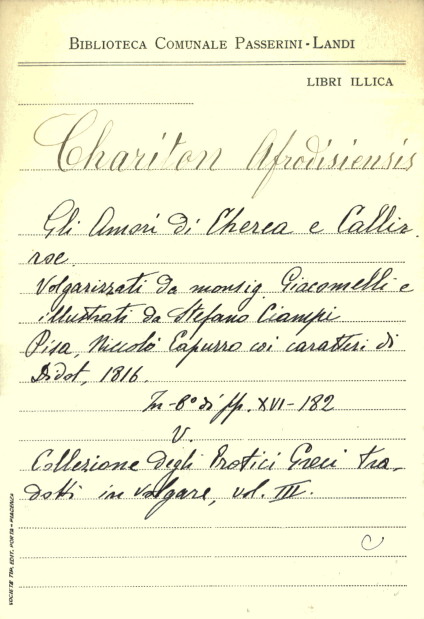 BIBLIOTECA COMUNALE PASSERINI-LANDI
LIBRI ILLICA
Chariton Afrodisiensis
Gli Amori di Cherea e Callir
roe.
Volgarizzati da monsig. Giacomelli e
illustrati da Stefano Ciampi
Pisa, Niccolò Capurro coi caratteri di
Didot, 1816.
In-8° di pp. XVI-182
V.
Collezione degli Erotici Greci tra-
dotti in volgare, vol. III.
C
SOCIETÀ TIP. EDIT. PORTA - PIACENZA